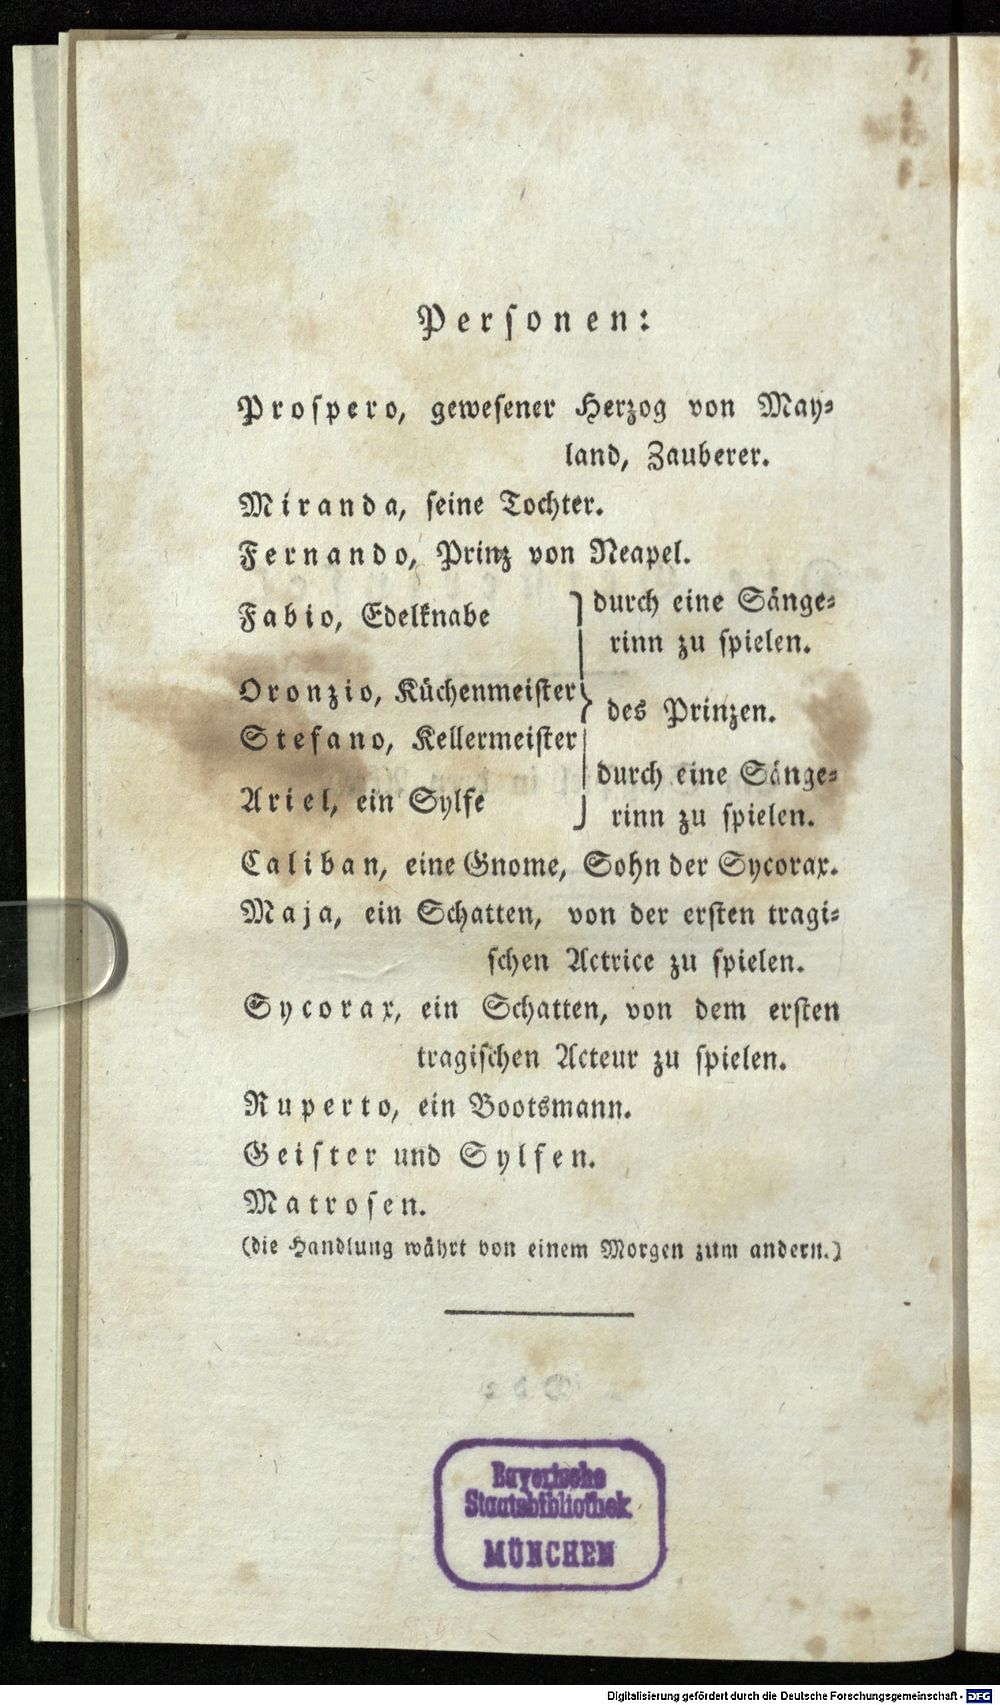 Personen:
Prospero, gewesener Herzog von May-
land, Zauberer.
Miranda, seine Tochter.
Fernando, Prinz von Neapel.
Fabio, Edelknabe
durch eine Sänge-
rinn zu spielen.
Oronzio, Küchenmeister
des Prinzen.
Stefano, Kellermeister
Ariel, ein Sylfe
durch eine Sänge-
rinn zu spielen.
Caliban, eine Gnome, Sohn der Sycorax.
Maja, ein Schatten, von der ersten tragi-
schen Actrice zu spielen.
Sycorax, ein Schatten, von dem ersten
tragischen Acteur zu spielen.
Ruperto, ein Bootsmann.
Geister und Sylfen.
Matrosen.
(die Handlung währt von einem Morgen zum andern.)
Bayerische
Staatsbibliothek
MÜNCHEN
Digitalisierung gefördert durch die Deutsche Forschungsgemeinschaft - DFG